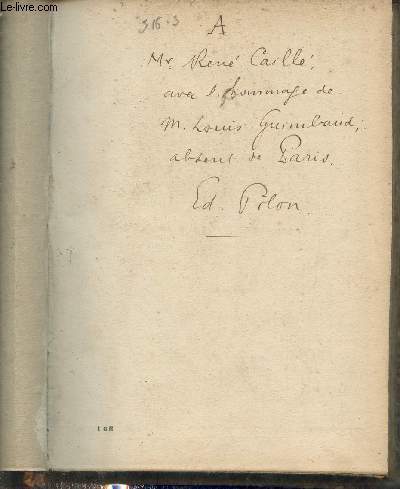 Le-livre.com
316.3
A
Mr. René Caillé,
avec l'hommage de
M. Louis Guimbaud,
absent de Paris.
Ed. Pilon.
168